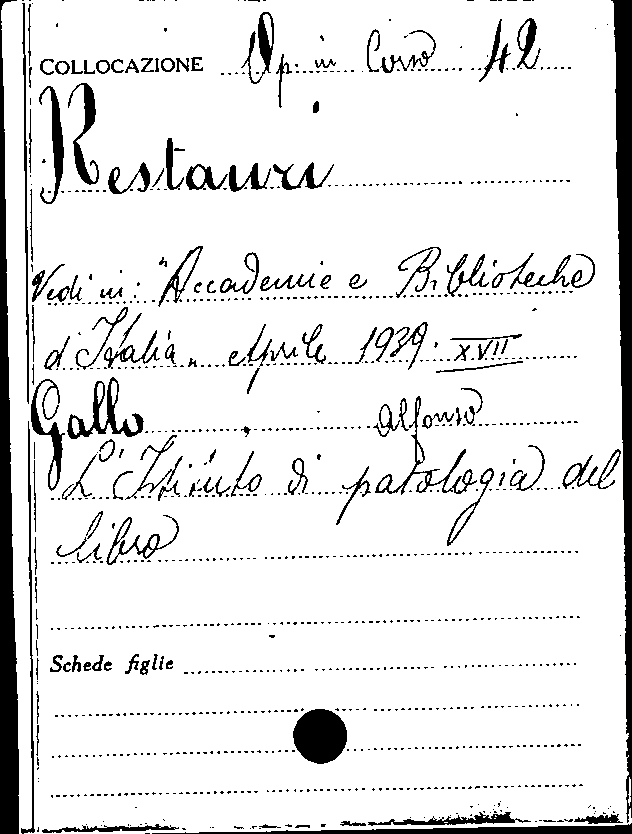 COLLOCAZIONE Op. in Corso 42
Restauri
Vedi in: "Accademie e Biblioteche
d'Italia„ Aprile 1939. XVII
Gallo Alfonso
L'Istituto di patologia del
libro
Schede figlie